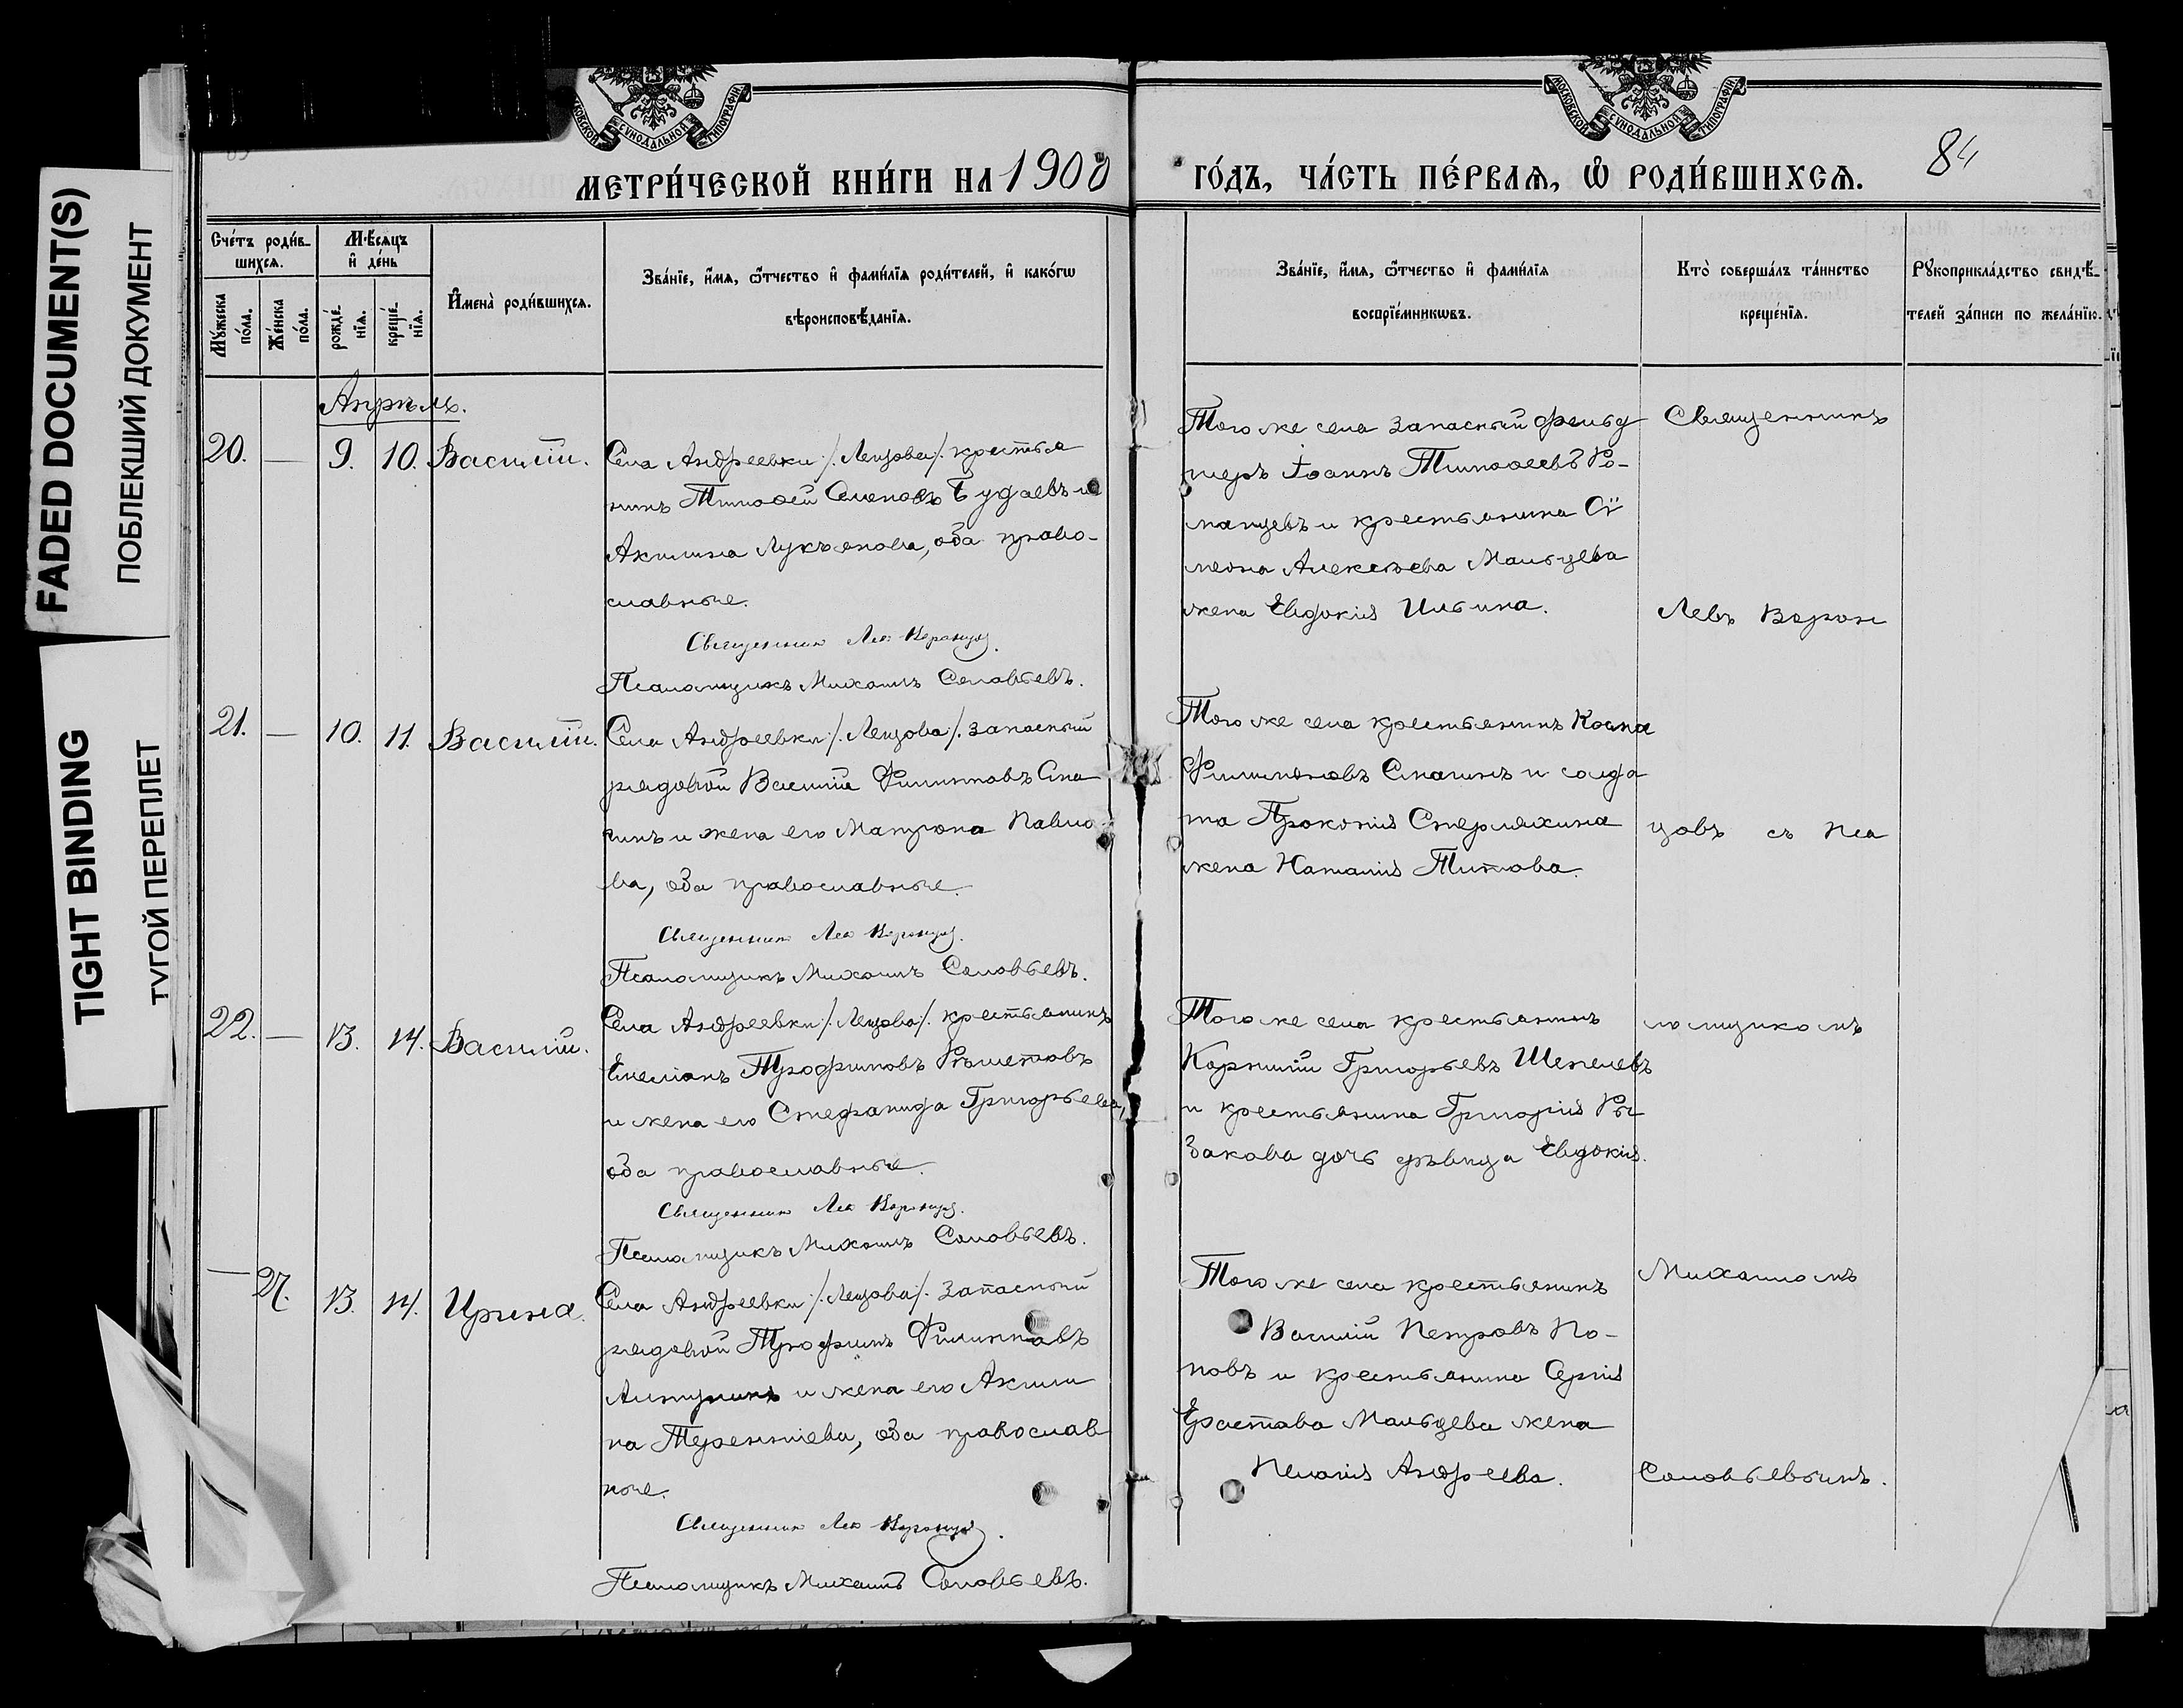 FADED DOCUMENT(S)
ПОБЛЕКШИЙ ДОКУМЕНТ
TIGHT BINDING
ТУГОЙ ПЕРЕПЛЕТ
МОСКОВСКОЙ СѴНОДАЛЬНОЙ ТИПОГРАФІИ
МЕТРИ́ЧЕСКОЙ КНИ́ГИ НА 1900 ГО́ДЪ, ЧА́СТЬ ПЕ́РВАЯ, Ѿ РОДИ́ВШИХСЯ.
84
Сче́тъ роди́в-
шихся.
Мѣ́сяцъ
и҆ де́нь
Му́жеска по́ла.
Же́нска по́ла.
рожде́нїя.
креще́нїя.
И҆мена̀ роди́вшихся.
Зва́нїе, и҆́мя, ѻ҆́тчество и҆ фами́лїя роди́телей, и҆ како́гѡ
вѣроисповѣ́данїя.
Зва́нїе, и҆́мя, ѻ҆́тчество и҆ фами́лїя
воспрїе́мникѡвъ.
Кто̀ соверша́лъ та́инство
креще́нїя.
Рꙋкоприкла́дство свидѣ́-
телей за́писи по жела́нїю.
Апрѣль.
20. — 9. 10. Василій.
Села Андреевки /. Лещова/. крестья
нинъ Тимоѳей Семеновъ Будаевъ и
Акилина Лукъянова, оба право-
славные.
Священник Лев Воронцов.
Псаломщикъ Михаилъ Соловьевъ.
Того же села запасный фельд
шеръ Іоаннъ Тимоѳеевъ Ро-
манцевъ и крестьянина Сѵ
меона Алексѣева Мальцева
жена Евдокія Ильина.
Священникъ
Левъ Ворон
21. — 10. 11. Василій.
Села Андреевки /. Лещова/. запасный
рядовой Василій Филипповъ Сма
гинъ и жена его Матрона Павло
ва, оба православные.
Священник Лев Воронцов.
Псаломщикъ Михаилъ Соловьевъ.
Того же села крестьянинъ Косма
Филимоновъ Смагинъ и солда
та Прокопія Стерляхина
жена Наталія Титова.
цовъ съ Пса
22. — 13. 14. Василій.
Села Андреевки /. Лещова/. крестьянинъ
Емеліанъ Трофимовъ Рѣшетовъ
и жена его Стефанида Григорьева,
оба православные.
Священник Лев Воронцов.
Псаломщикъ Михаилъ Соловьевъ.
Того же села крестьянинъ
Корнилій Григорьевъ Шепелевъ
и крестьянина Григорія Ры
закова дочь дѣвица Евдокія.
ломщикомъ
— 27. 13. 14. Ирина.
Села Андреевки /. Лещова/. запасный
рядовой Трофимъ Филипповъ
и жена его Акили
на Терентіева, оба православ
ные.
Священник Лев Воронцов.
Псаломщикъ Михаилъ Соловьевъ.
Того же села крестьянинъ
Василій Петровъ По-
повъ и крестьянина Сергія
Ерастова Мальцева жена
Пелагія Андреева.
Михаиломъ
Соловьевымъ.